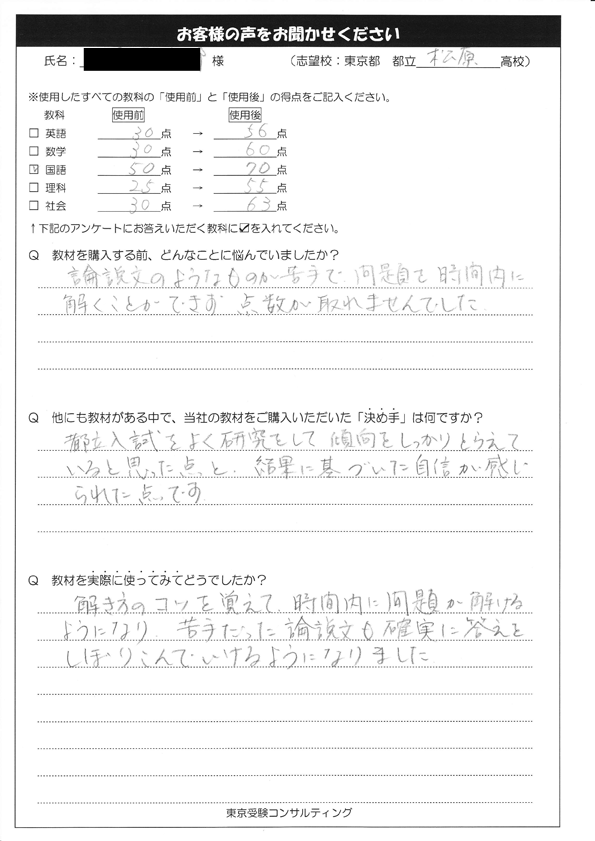 お客様の声をお聞かせください
氏名： 様 （志望校：東京都 都立 松原 高校）
※使用したすべての教科の「使用前」と「使用後」の得点をご記入ください。
教科 使用前 使用後
□ 英語 30 点 → 56 点
□ 数学 30 点 → 60 点
☑ 国語 50 点 → 70 点
□ 理科 25 点 → 55 点
□ 社会 30 点 → 63 点
↑下記のアンケートにお答えいただく教科に☑を入れてください。
Q 教材を購入する前、どんなことに悩んでいましたか？
論説文のようなものが苦手で 問題を時間内に
解くことができず 点数が取れませんでした
Q 他にも教材がある中で、当社の教材をご購入いただいた「決め手」は何ですか？
都立入試をよく研究をして傾向をしっかりとらえて
いると思った点と、結果に基づいた自信が感じ
られた点です
Q 教材を実際に使ってみてどうでしたか？
解き方のコツを覚えて、時間内に問題が解ける
ようになり 苦手だった論説文も確実に答えを
しぼりこんでいけるようになりました
東京受験コンサルティング